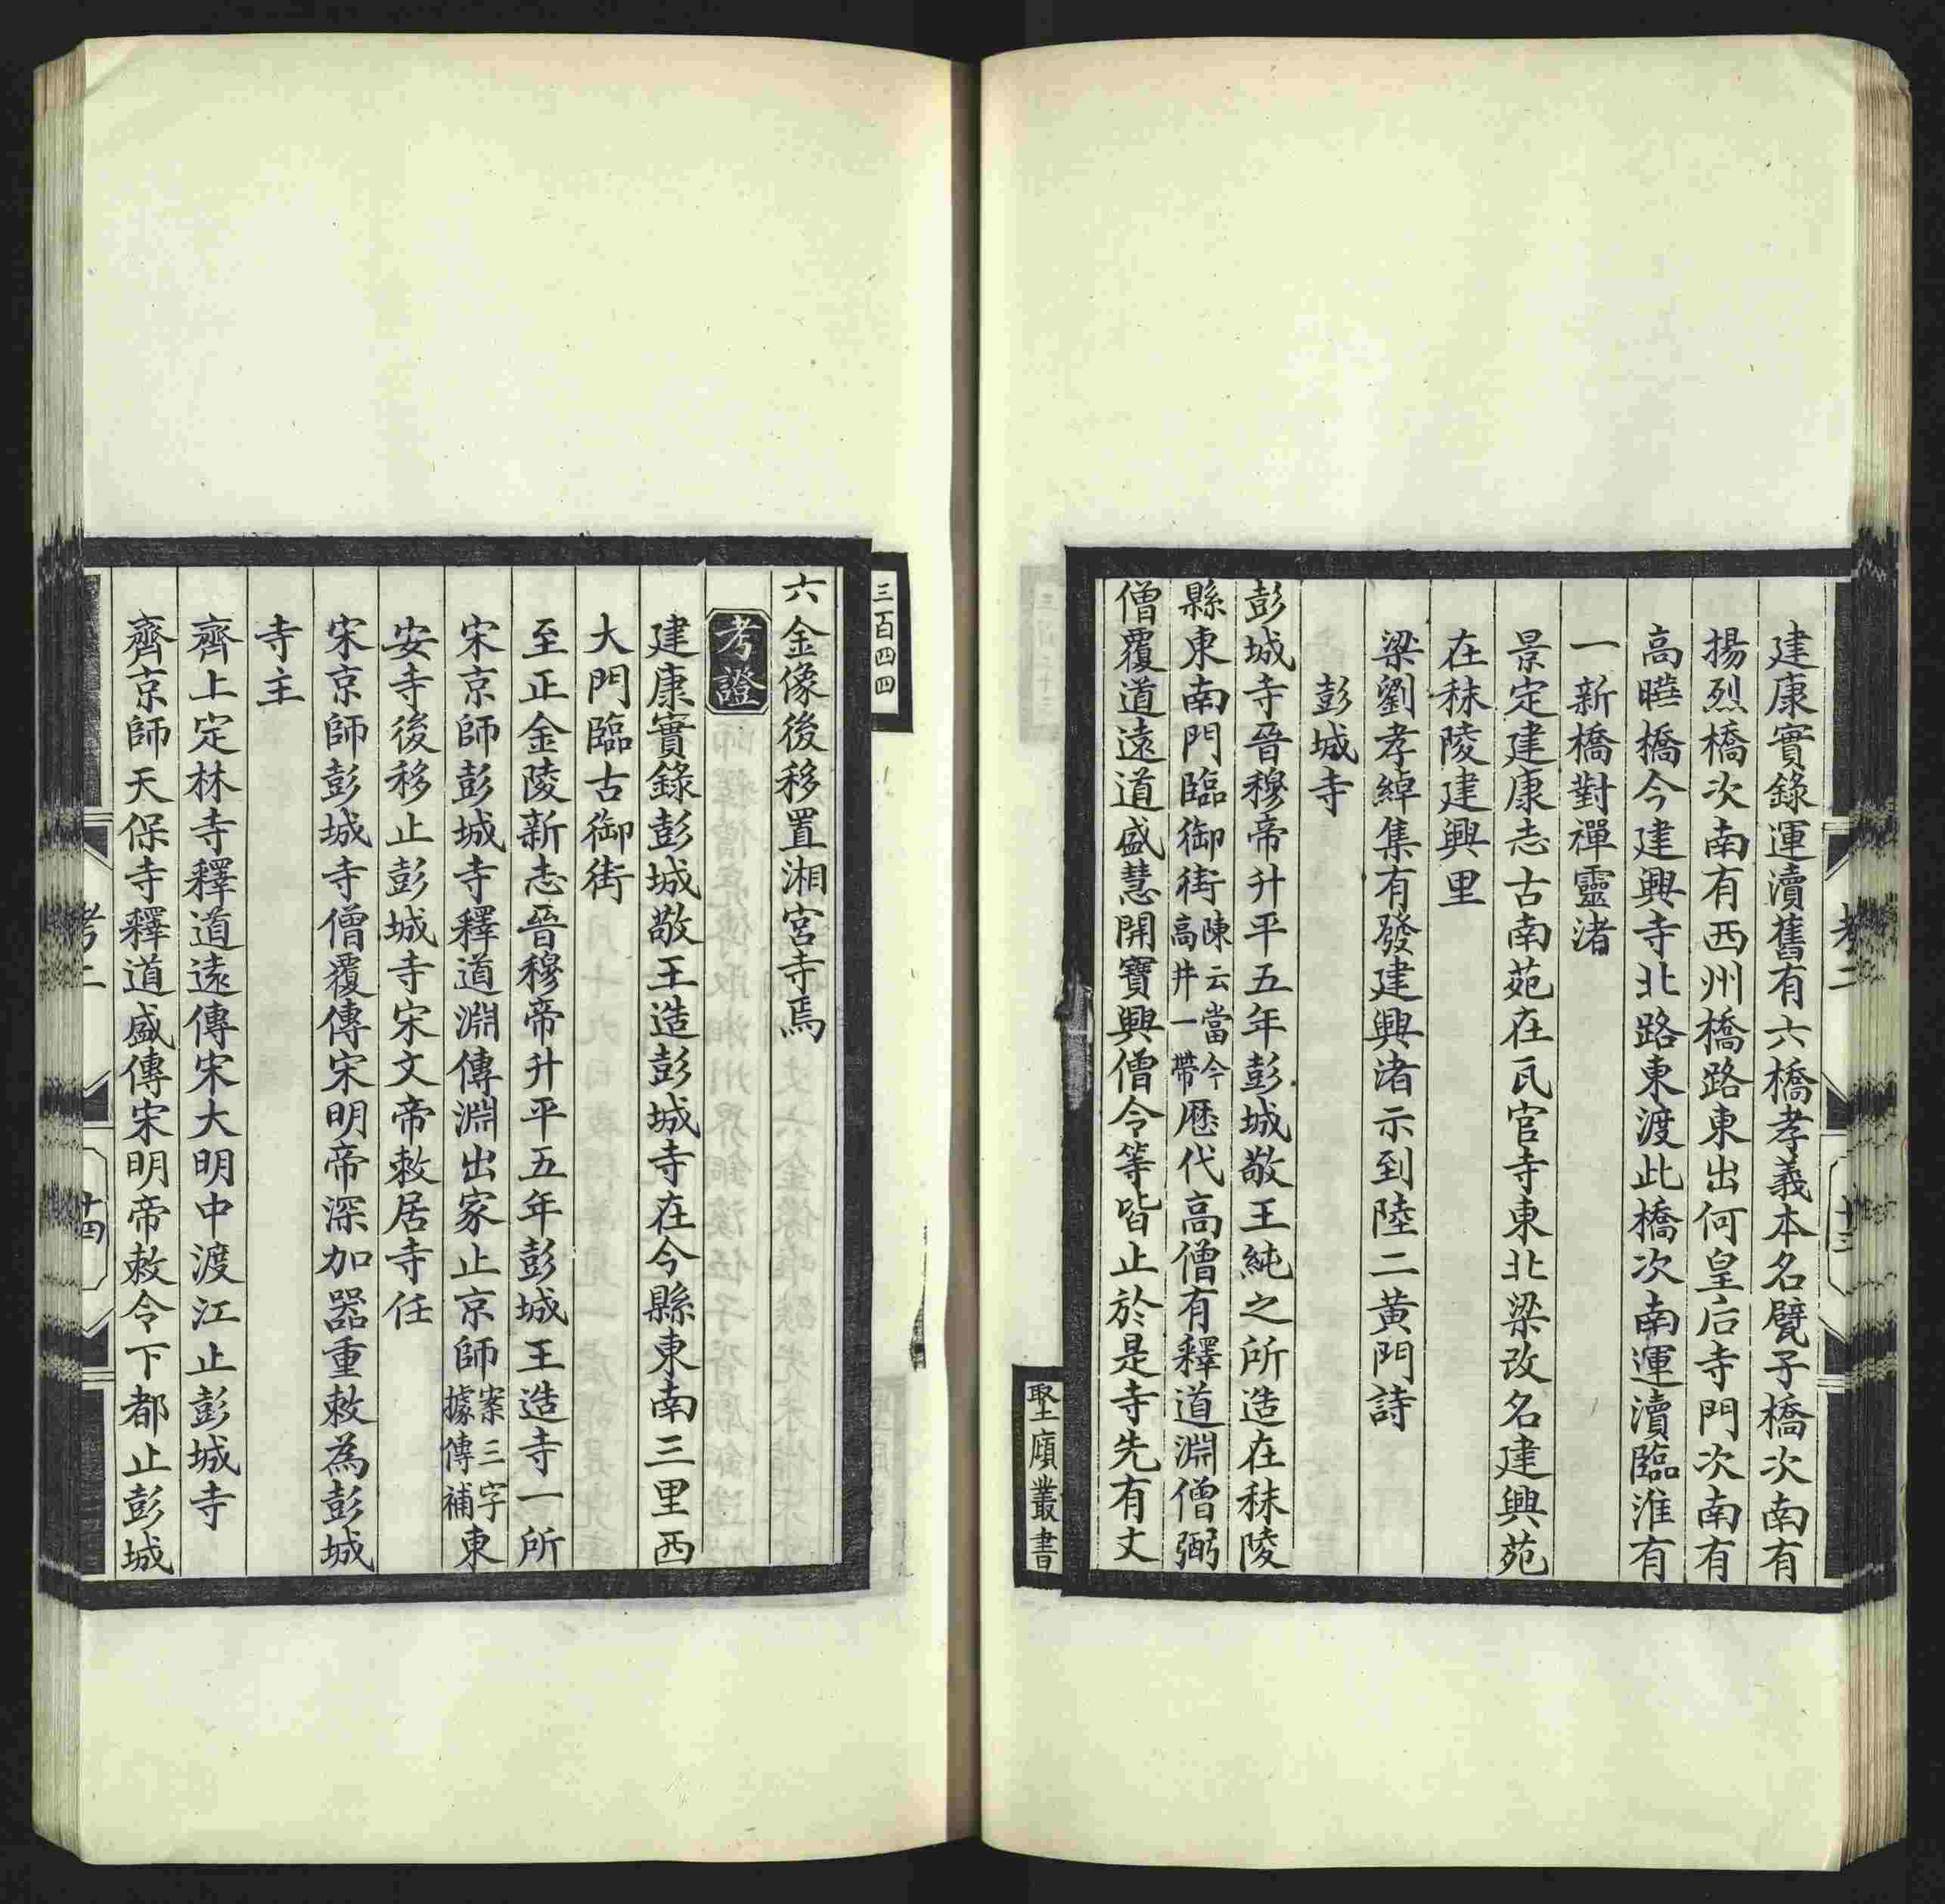 建康實錄運瀆舊有六橋孝義本名甓子橋次南有
揚烈橋次南有西州橋路東出何皇后寺門次南有
高曄橋今建興寺北路東渡此橋次南運瀆臨淮有
一新橋對禪靈渚
景定建康志古南苑在瓦官寺東北梁改名建興苑
在秣陵建興里
梁劉孝綽集有發建興渚示到陸二黃門詩
彭城寺
彭城寺晉穆帝升平五年彭城敬王純之所造在秣陵
縣東南門臨御街陳云當今高井一帶歷代高僧有釋道淵僧弼
僧覆道遠道盛慧開寶興僧令等皆止於是寺先有丈
堅廎叢書
三百四四
六金像後移置湘宮寺焉
考證
建康實錄彭城敬王造彭城寺在今縣東南三里西
大門臨古御街
至正金陵新志晉穆帝升平五年彭城王造寺一所
宋京師彭城寺釋道淵傳淵出家止京師案三字據傳補東
安寺後移止彭城寺宋文帝敕居寺任
宋京師彭城寺僧覆傳宋明帝深加器重敕為彭城
寺主
齊上定林寺釋道遠傳宋大明中渡江止彭城寺
齊京師天保寺釋道盛傳宋明帝敕令下都止彭城
考二
十四